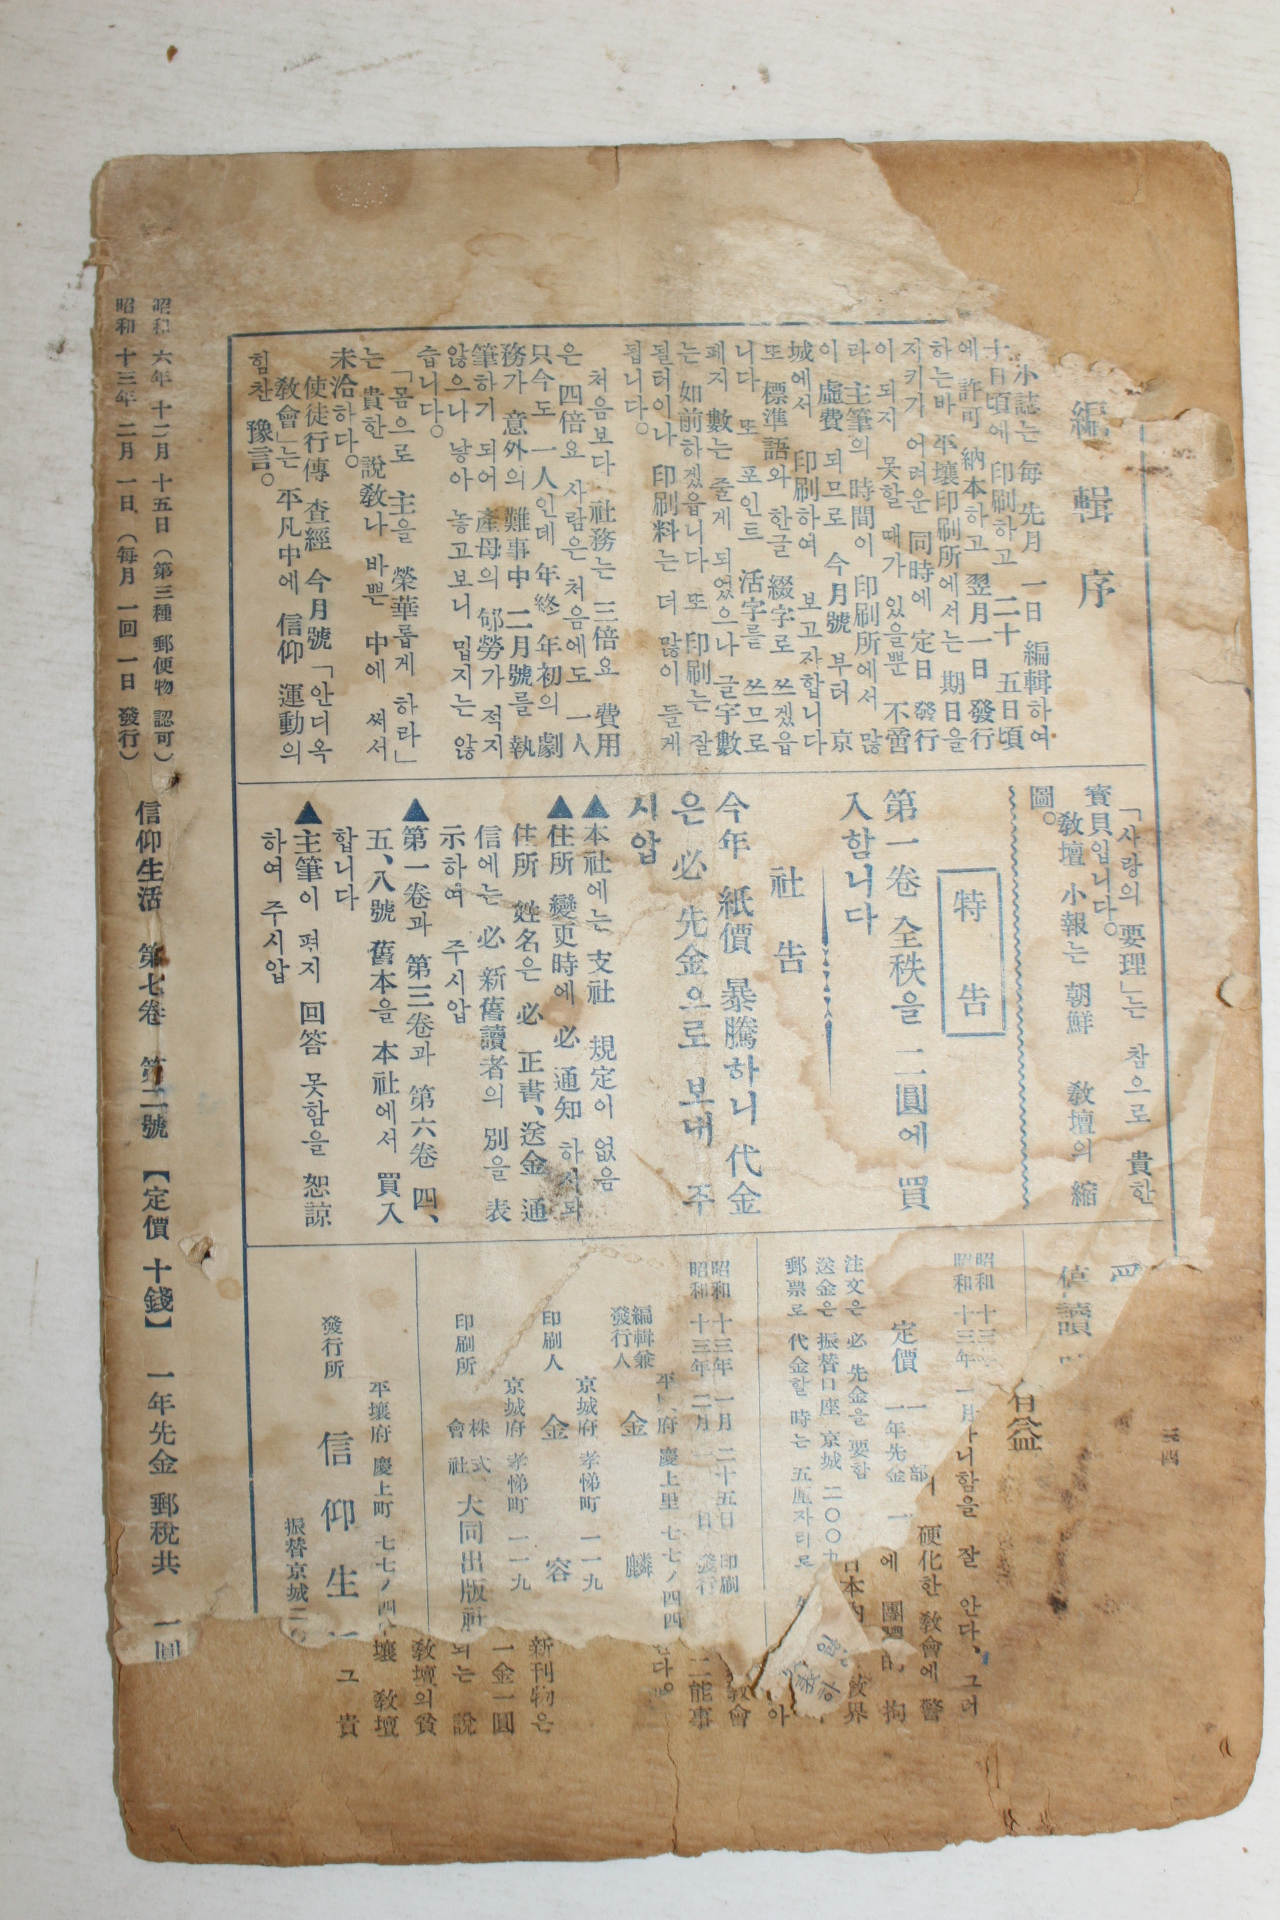 編輯序
小誌는 每先月 一日 編輯하여
十日頃에 印刷하고 二十 五日頃
에 許可 納本하고 翌月一日 發行
하는바 平壤印刷所에서는 期日을
지키기 어려운 同時에 定日 發行
이 되지 못할 때가 있을뿐 不啻
라 主筆의 時間이 印刷所에서 많
이 虛費 되므로 今月號 부터 京
城에서 印刷하여 보고자합니다
또 標準語와 한글 綴字로 쓰겠음
니다 또 포인트 活字를 쓰므로
페지 數는 줄게 되었으나 글字數
는 如前하겠읍니다 또 印刷는 잘
될터이나 印刷料는 더 많이 들게
됩니다。
처음보다 社務는 三倍요 費用
은 四倍요 사람은 처음에도 一人
只今도 一人인데 年終 年初의 劇
務가 意外의 難事中 二月號를 執
筆하기 되어 產母의 劬勞가 적지
않으나 낳아 놓고보니 밉지는 않
습니다。
「몸으로 主을 榮華롭게 하라」
는 貴한 說敎나 바쁜 中에 써서
未洽하다。
使徒行傳 査經 今月號 「안디옥
敎會」는 平凡中에 信仰 運動의
힘찬 豫言。
「사랑의 要理」는 참으로 貴한
寶貝입니다。
敎壇 小報는 朝鮮 敎壇의 縮
圖。
特告
第一卷 全秩을 二圓에 買
入함니다
社告
今年 紙價 暴騰하니 代金
은 必 先金으로 보내 주
시압
▲本社에는 支社 規定이 없음
▲住所 變更時에 必 通知 하시되
住所 姓名은 必 正書、送金 通
信에는 必 新舊讀者의 別을 表
示하여 주시압
▲第一卷과 第三卷과 第六卷 四、
五、八號 舊本을 本社에서 買入
합니다
▲主筆이 펴지 回答 못함을 恕諒
하여 주시압
有益
三四
昭和 十三
昭和 十三年 一月
니함을 잘 안다、그러
定價 一部
一年先金 一
硬化한 敎會에 警
에 團 的 拘
注文은 必 先金을 要함
送金은 振替口座 京城 二〇〇九
郵票로 代金할 時는 五厘자리로
日本
敎界
昭和 十三年 一月 二十五日 印刷
昭和 十三年 二月 一 日 發行
敎會
能事
編輯兼
發行人
平 府 慶上里 七七ノ四四
金 麟
京城府 孝悌町 一一九
印刷人 金 容
京城府 孝悌町 一一九
印刷所 株式會社 大同出版社
新刊物은
一金一圓
되는 說
敎壇의 貧
平壤府 慶上町 七七ノ四
壤 敎壇
發行所 信仰生
그 貴
振替京城二
信仰生活 第七卷 第二號 【定價 十錢】 一年先金 郵稅共 一圓
昭和 六年 十二月 十五日 (第三種 郵便物 認可)
昭和 十三年 二月 一日、(每月 一回 一日 發行)